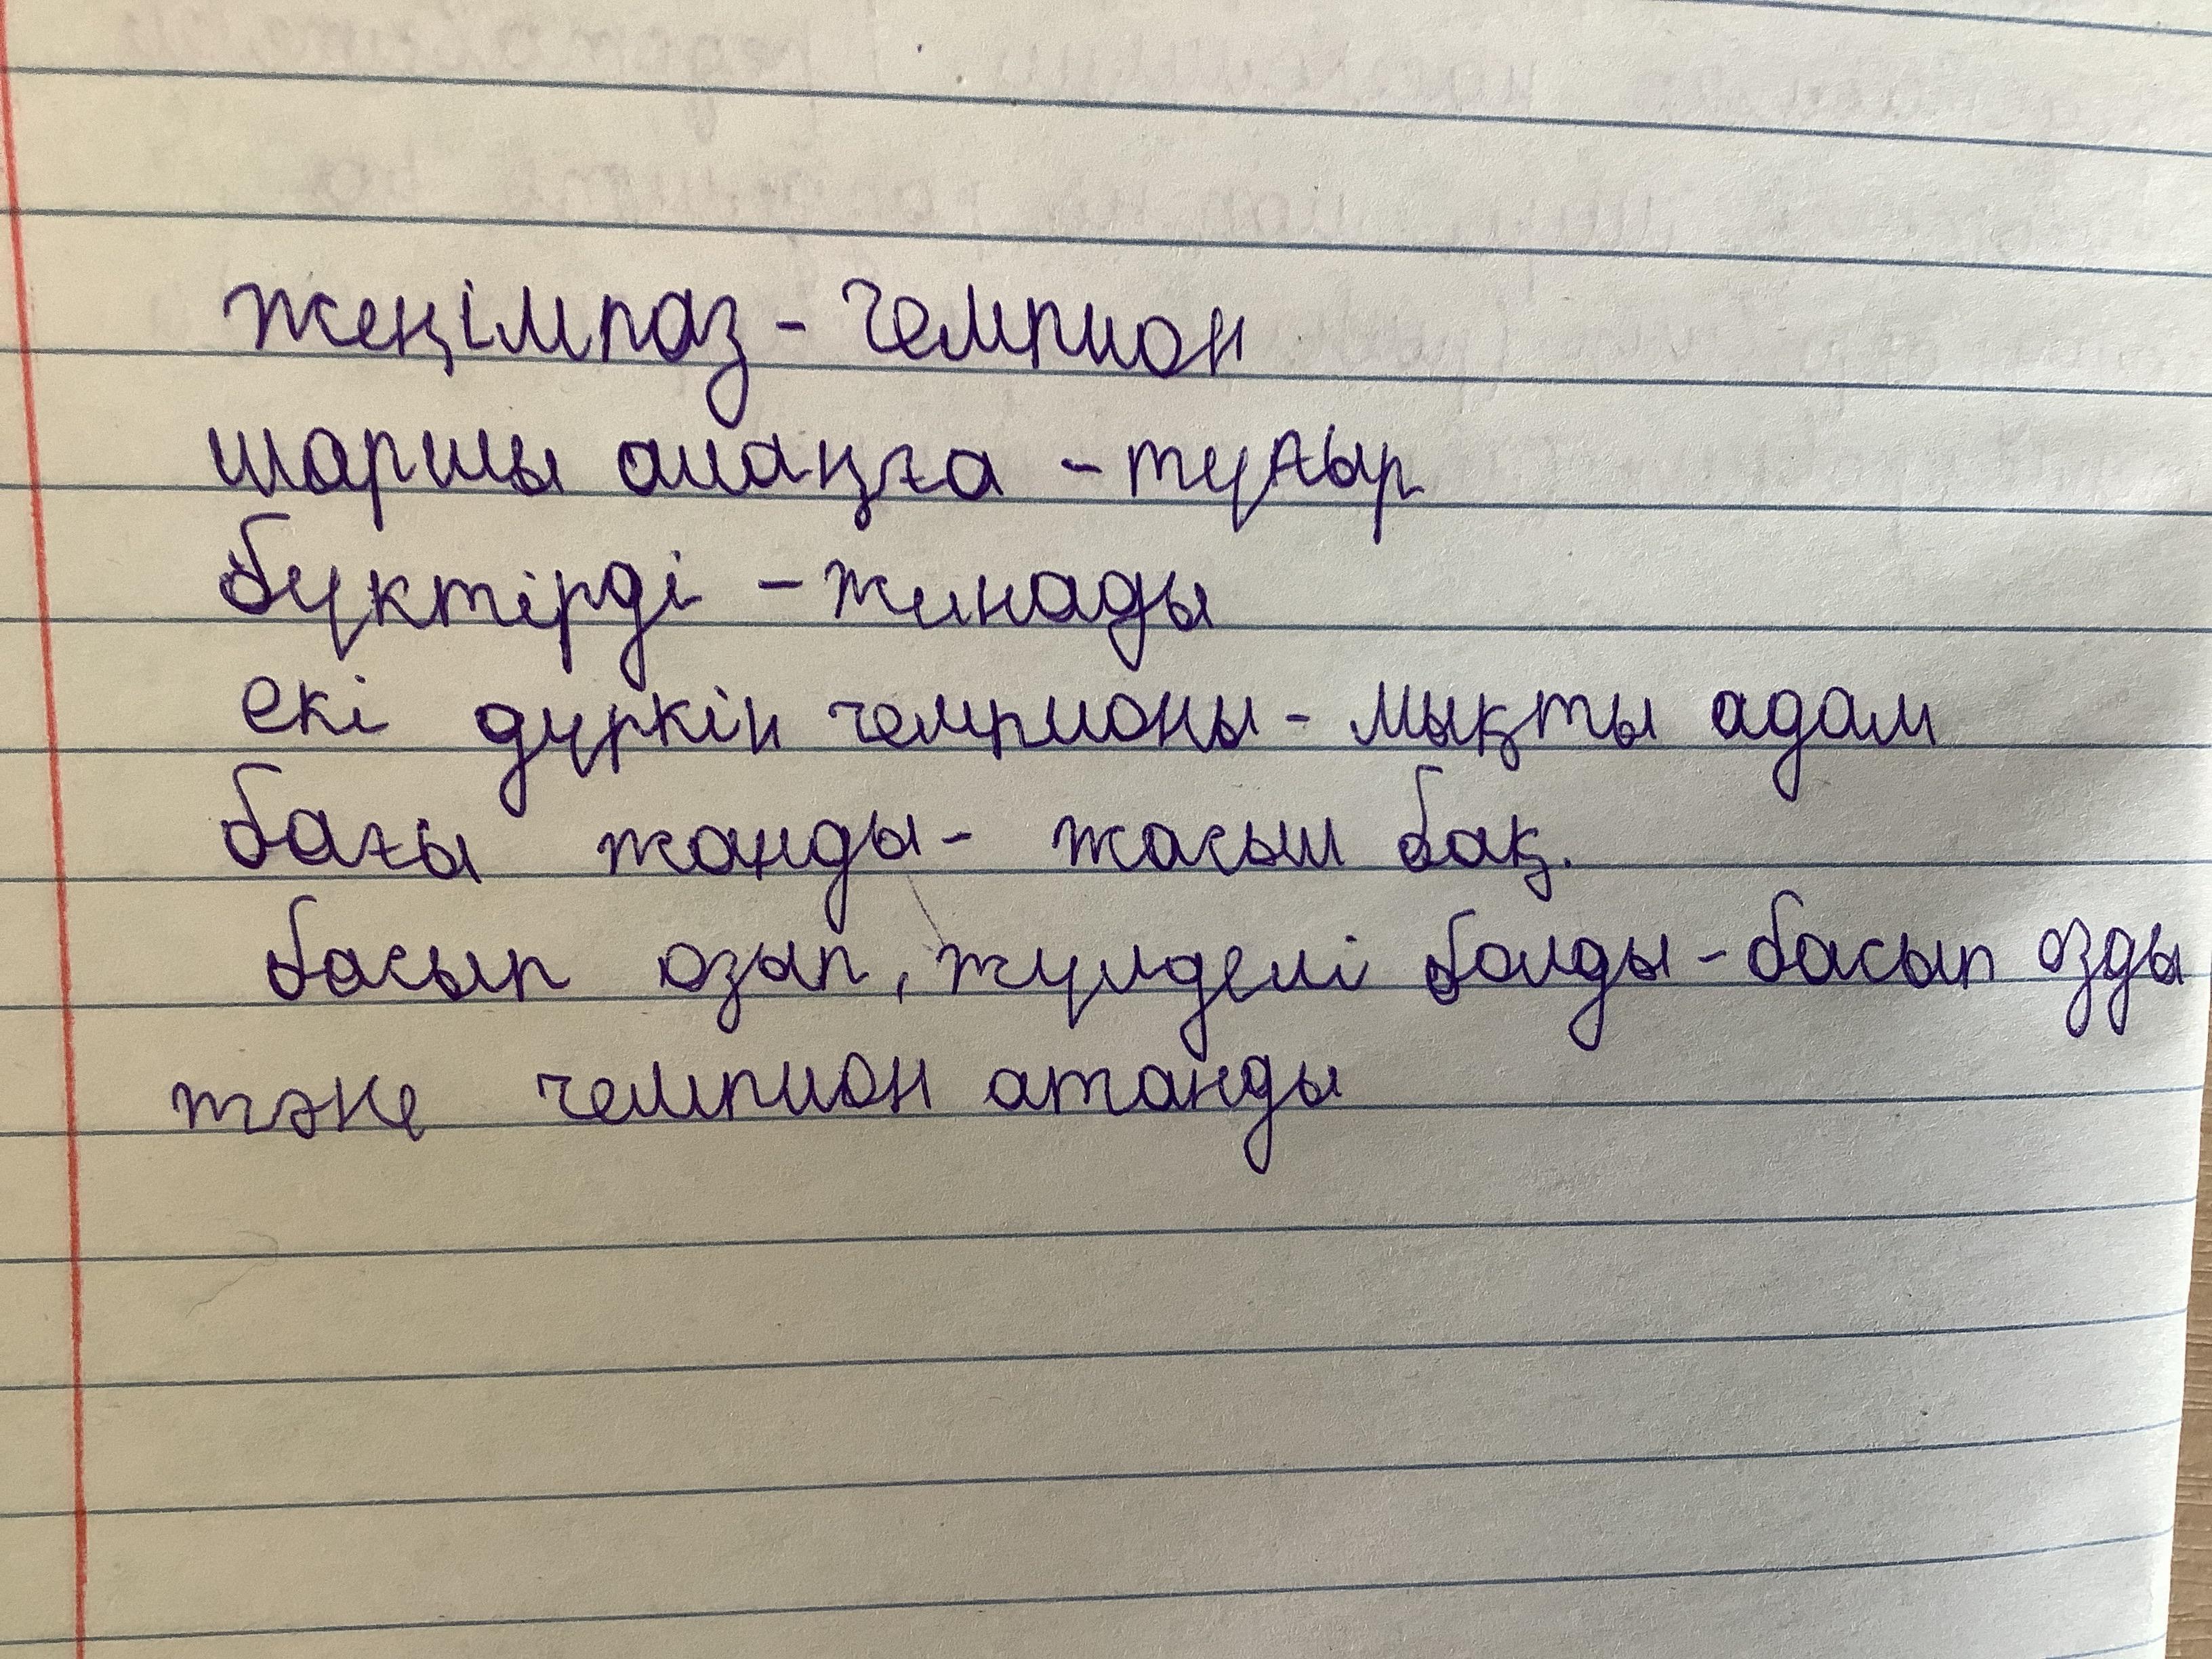 жеңімпаз - чемпион
шаршы алаңға - туғыр
бүктірді - жинады
екі дүркін чемпионы - мықты адам
бағы жанды - жасыл бақ.
басып озып, жүлделі болды - басып озды
және чемпион атанды